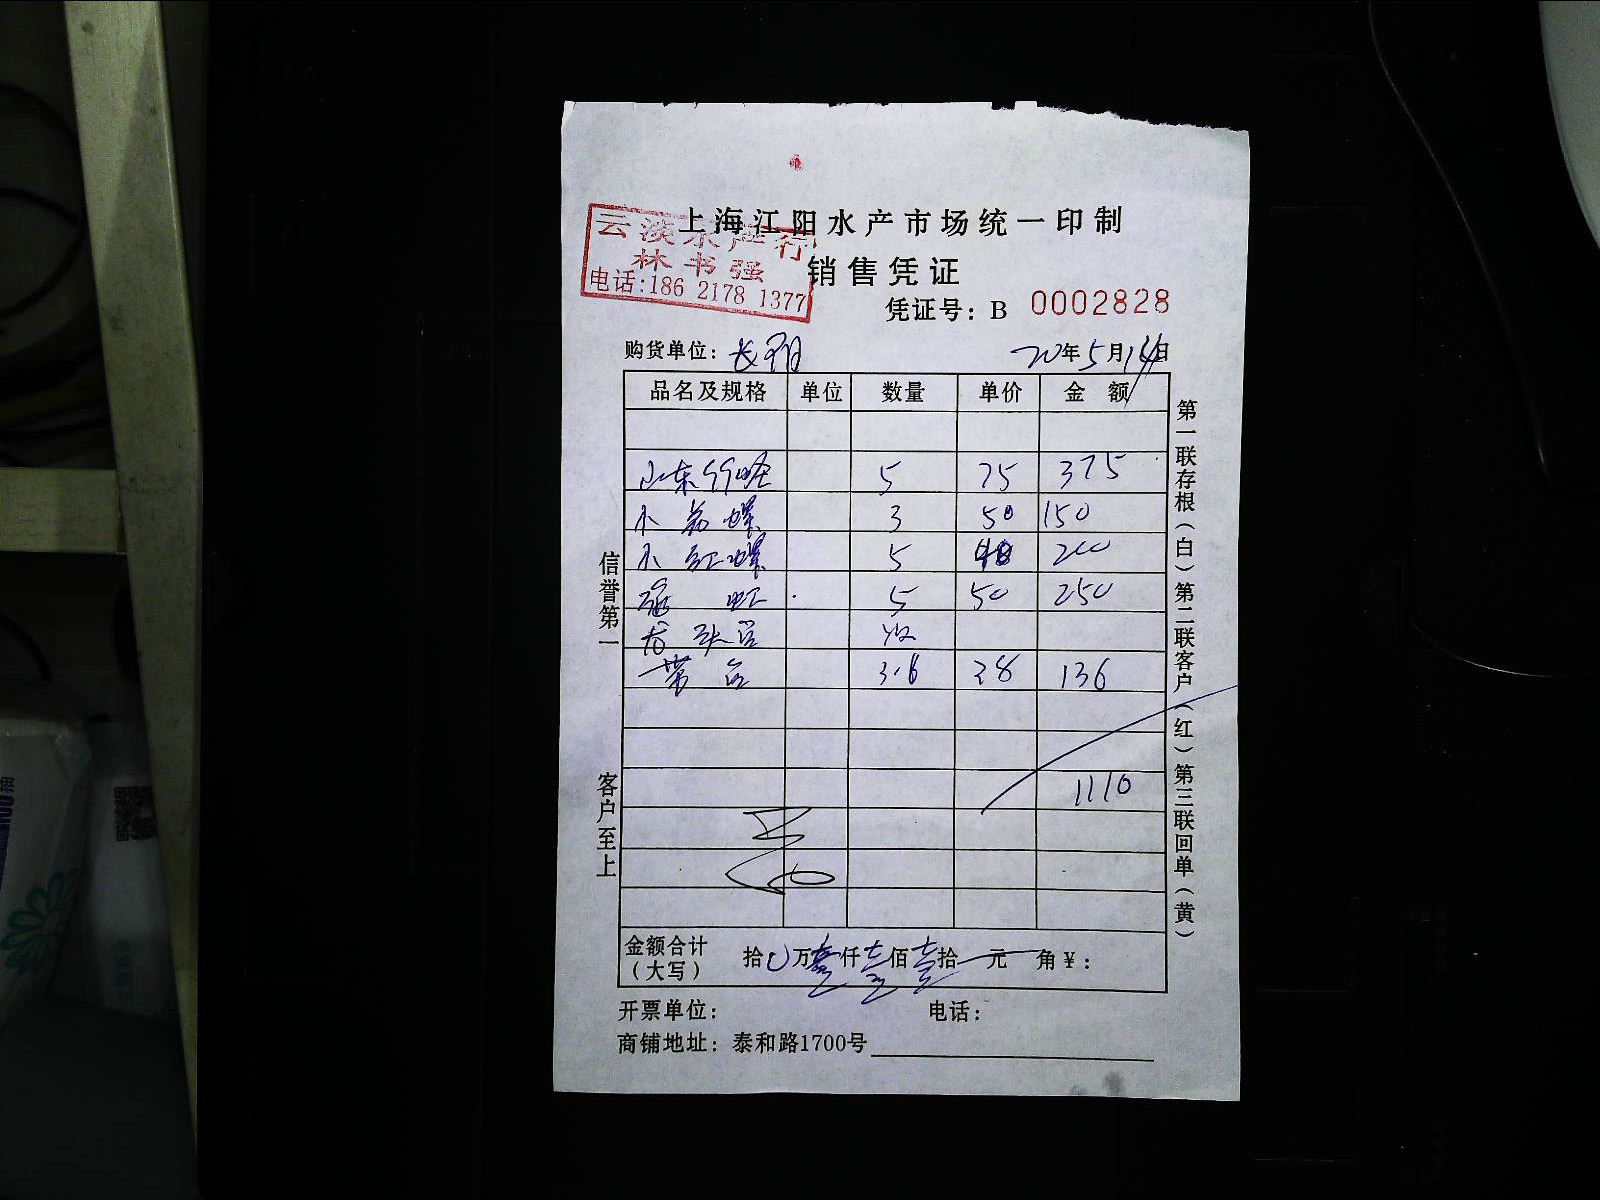 上海江阳水产市场统一印制
云淡水产行
林书强
电话:186 2178 1377
销售凭证
凭证号: B 0002828
购货单位: 长翔
20年5月14日
品名及规格 单位 数量 单价 金额
山东竹蛏 5 75 375
小 螺 3 50 150
小红螺 5 40 200
5 50 250
龙头
带 3.6 38 136
1110
金额合计(大写) 拾0万壹仟壹佰壹拾 元 角¥:
开票单位: 电话:
商铺地址: 泰和路1700号
信誉第一 客户至上
第一联存根(白)第二联客户(红)第三联回单(黄)
100抽